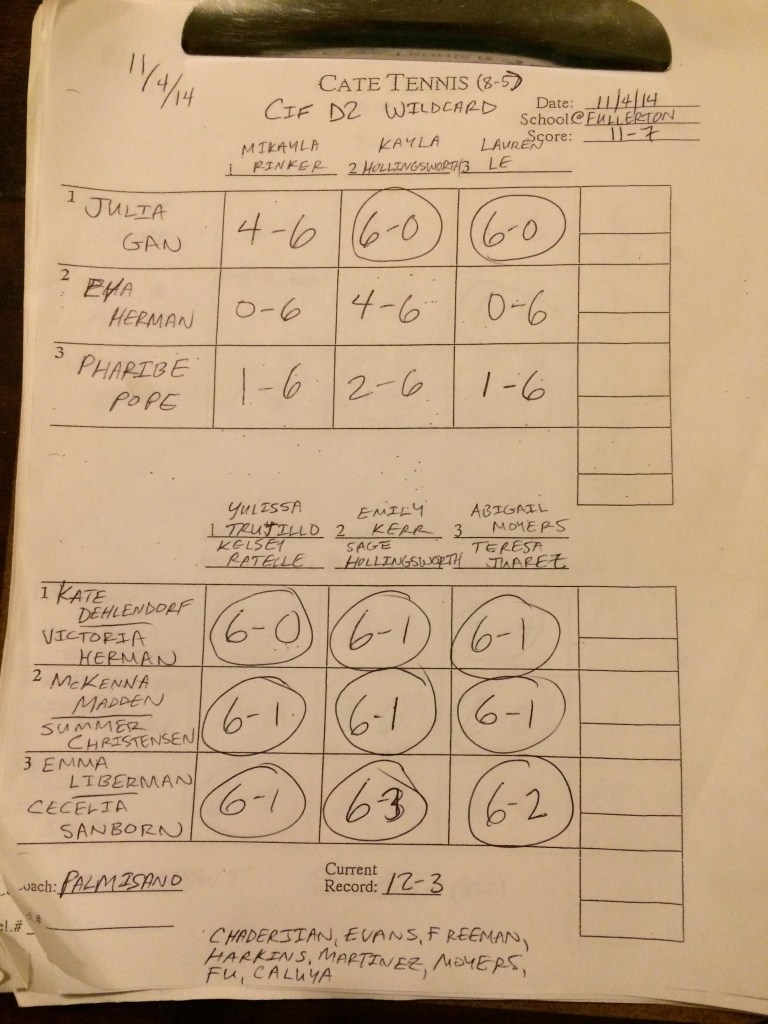 11/4/14
CATE TENNIS (8-5)
CIF D2 WILDCARD
Date: 11/4/14
School: @ FULLERTON
Score: 11-7
MIKAYLA KAYLA LAUREN
1 RINKER 2 HOLLINGSWORTH 3 LE
1 JULIA
GAN 4-6 6-0 6-0
2
HERMAN 0-6 4-6 0-6
3 PHARIBE
POPE 1-6 2-6 1-6
YULISSA EMILY ABIGAIL
1 TRUJILLO 2 KERR 3 MOYERS
KELSEY SAGE TERESA
RATELLE HOLLINGSWORTH JUAREZ
1 KATE
DEHLENDORF
VICTORIA
HERMAN 6-0 6-1 6-1
2 MCKENNA
MADDEN
SUMMER
CHRISTENSEN 6-1 6-1 6-1
3 EMMA
LIBERMAN
CECELIA
SANBORN 6-1 6-3 6-2
oach: PALMISANO
Current
Record: 12-3
el.#
CHADERJIAN, EVANS, FREEMAN,
HARKINS, MARTINEZ, MOYERS,
FU, CALUYA